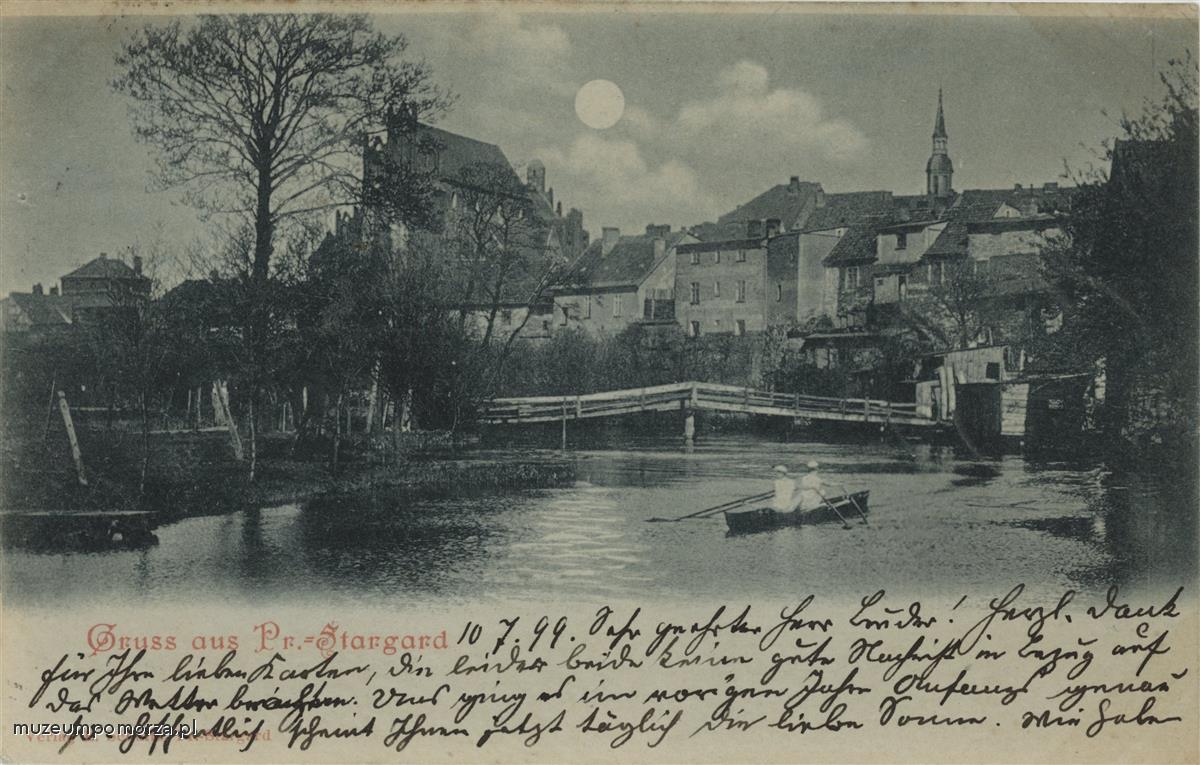 Gruss aus Pr.-Stargard 10 7. 99. Sehr geehrter Herr Lender! Herzl. Dank
für Ihre lieben Karten, die leider beide keine gute Nachricht in Bezug auf
das Wetter brachten. Uns ging es im vorigen Jahre Anfangs genau
so, hoffentlich scheint Ihnen jetzt täglich die liebe Sonne. Wir haben
muzeumpomorza.pl
Stargard